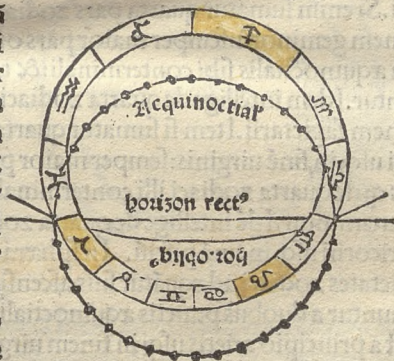 ♑ ♐
♒ ♏
Aequinoctialꝰ
♓ ♎
horizon rectꝰ
♈ ♍
hor. obliqꝰ
♉ ♊ ♋ ♌